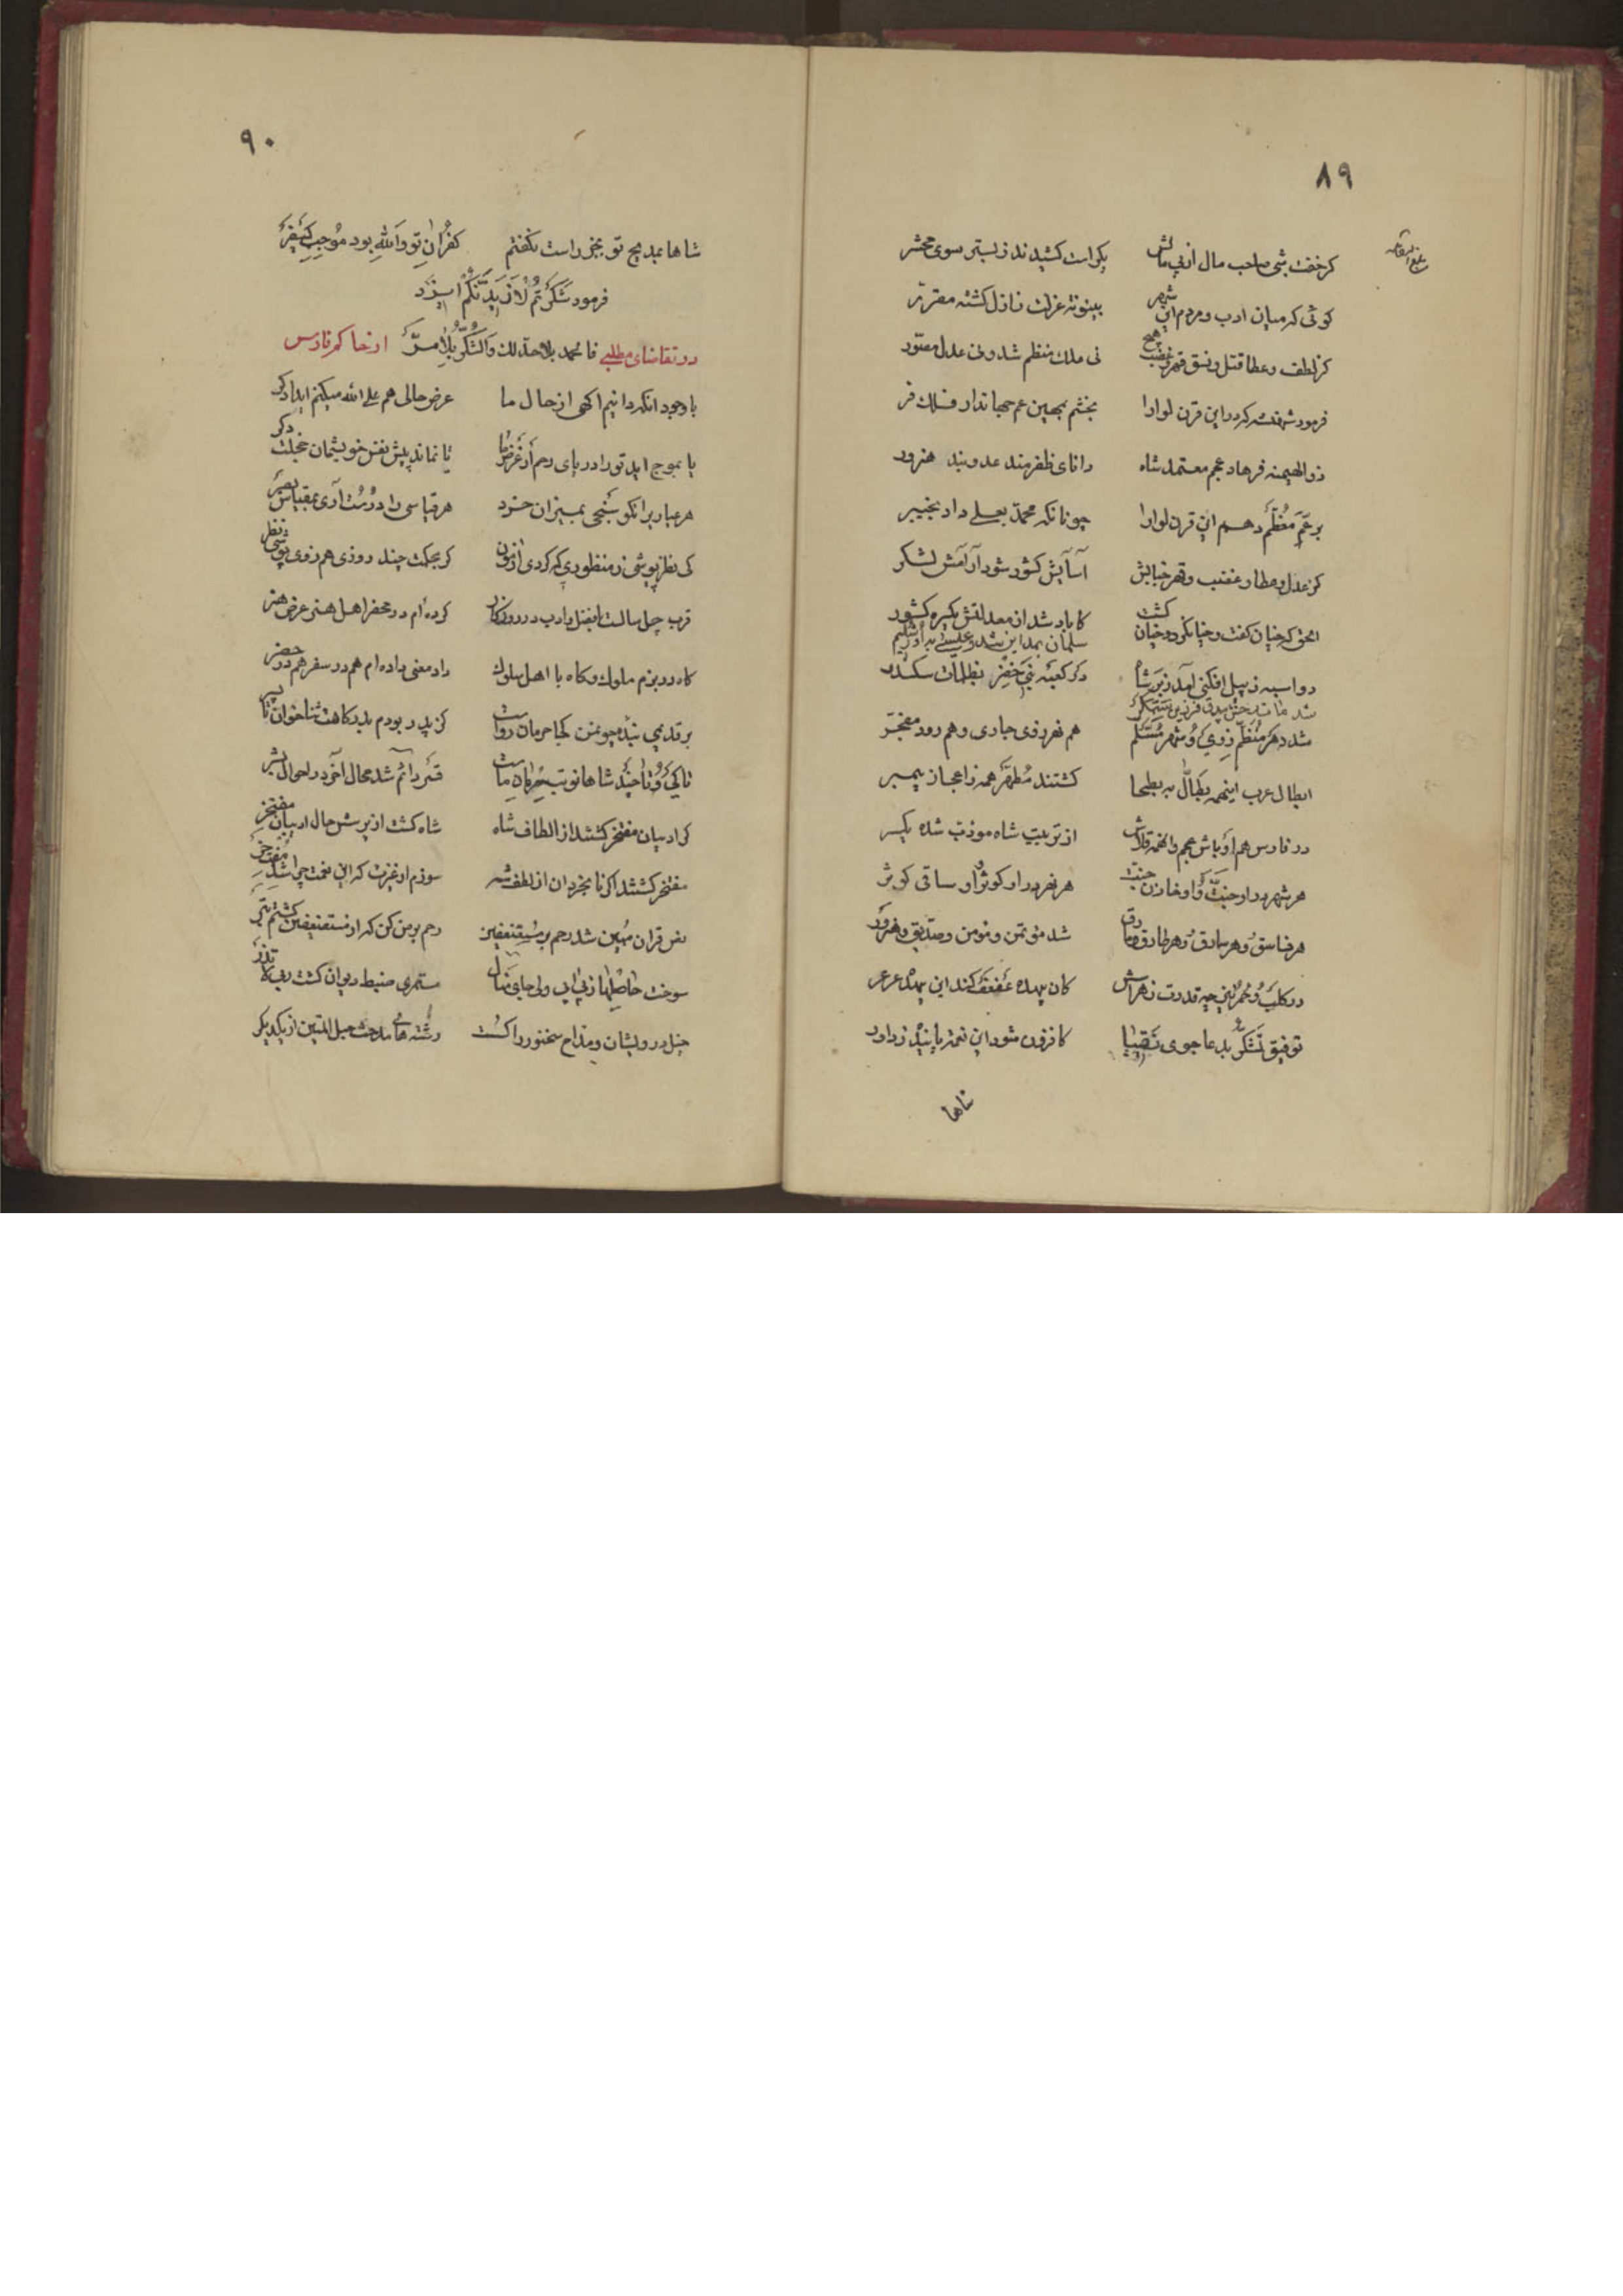 ٨٩
کر خفت شبی صاحب مال از پی مالش یکراست کشیدند ز بستر سوی محشر
کوئی که میان ادب و مردم این شهر بینونة عزلت ز ازل کشته مقرر
کز لطف و عطا قتل و نسق قهر و غضب هیچ نی ملک منظم شد و نی عدل مصور
فرمود شهنشه که در این قرن لوا را بخشم بمهین عم جهاندار فلک فر
ذوالهیمنه فرهاد عجم معتمد شاه دانای ظفرمند عدوبند هنرور
بر عم معظم دهم این قرن لوا را چونانکه محمد بعلی داد بخیبر
کز عدل و عطا و غضب و قهر خبایش آسایش کشور شود آرامش لشکر
الحق که چنان کفت و چنان کرد و چنان کشت کاباد شد از معدلتش یکسره کشور
سلمان بمداین شد و عیسی به
در کعبه نبی خضر بظلمات سکندر
دو اسبه ز پیل افکنی آمد ز بر شاه
شد مات رخش بیدق فرزین ستمکر
شد دهر منظم ز وی و شهر مسلم هم نهر ز وی جاری و هم رود مفجر
ابطال عرب اینهمه بطال به بطحا کشتند مطهر همه ز اعجاز پیمبر
در فارس هم اوباش عجم و انهمه قلاش از تربیت شاه مودب شده یکسر
هر شهر در او جنت و او خازن جنت هر نهر در او کوثر و او ساقی کوثر
هر فاسق و هر سارق و هر طارق و مارق شد مؤتمن و مومن و صدیق و هنرور
در کلب و حمر بین چه قدرت ز هراش کان پهده عفعف کند این پهده عرعر
توفیق تشکر بدعا جوی کافزون شود این نعمت پاینده ز داور
شاها
٩٠
شاها بمدیح تو بجز راست نکفتم کفران تو والله بود موجب کیفر
فرمود شکرتم لازیدنکم ایزد
در تقاضای مطلبی فالحمد بلا حد لک والشکر بلا مر از حاکم فارس
با وجود انکه دانیم اکهی از حال ما عرض حالی هم علی الله میکنم ایدادکر
تا بموج اید تو را دریای رحم از عرض ما تا نماند پیش نفس خویشمان خجلت دکر
هر عیاریرا نکو سنجی بمیزان خرد هر قیاسی را درست آری بمقیاس بصر
کی نظر پوشی ز منظوری که کردی ازمون کر بحکمت چند روزی هم ز وی پوشی نظر
قرب چل سالست بفضل و ادب در روزکار کرده‌ام در محضر اهل هنر عرض هنر
کاه در بزم ملوک و کاه با اهل سلوک داد معنی داده‌ام هم در سفر هم در حضر
بر قدیمی بنده چو من کجا حرمان رواست کز پدر بودم بدرکاهت ثناخوان تا پسر
تا کی و تا چند شاها نوبت حرمان ماست قسر دائم شد محال آخر در احوال بشر
کر ادیبان مفتخر کشتند از الطاف شاه شاه کشت از پرسش حال ادیبان مفتخر
مفتخر کشتند اکر نابخردان از لطف شه سوزم از غیرت که این نعمت چرا شد
نص قران مبین شد رحم بر مستضعفین رحم بر من کن که از مستضعفین کشتم بتر
سوخت حاصلها ز بی ابی ولی جای منال مستمری ضبط دیوان کشت
حبل درویشان و مداح سخنور را کست رشته های مدحت حبل المتین از یکدیکر